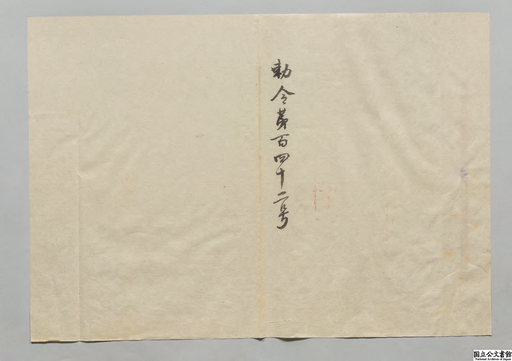 勅令第百四十二号
国立公文書館
National Archives of Japan